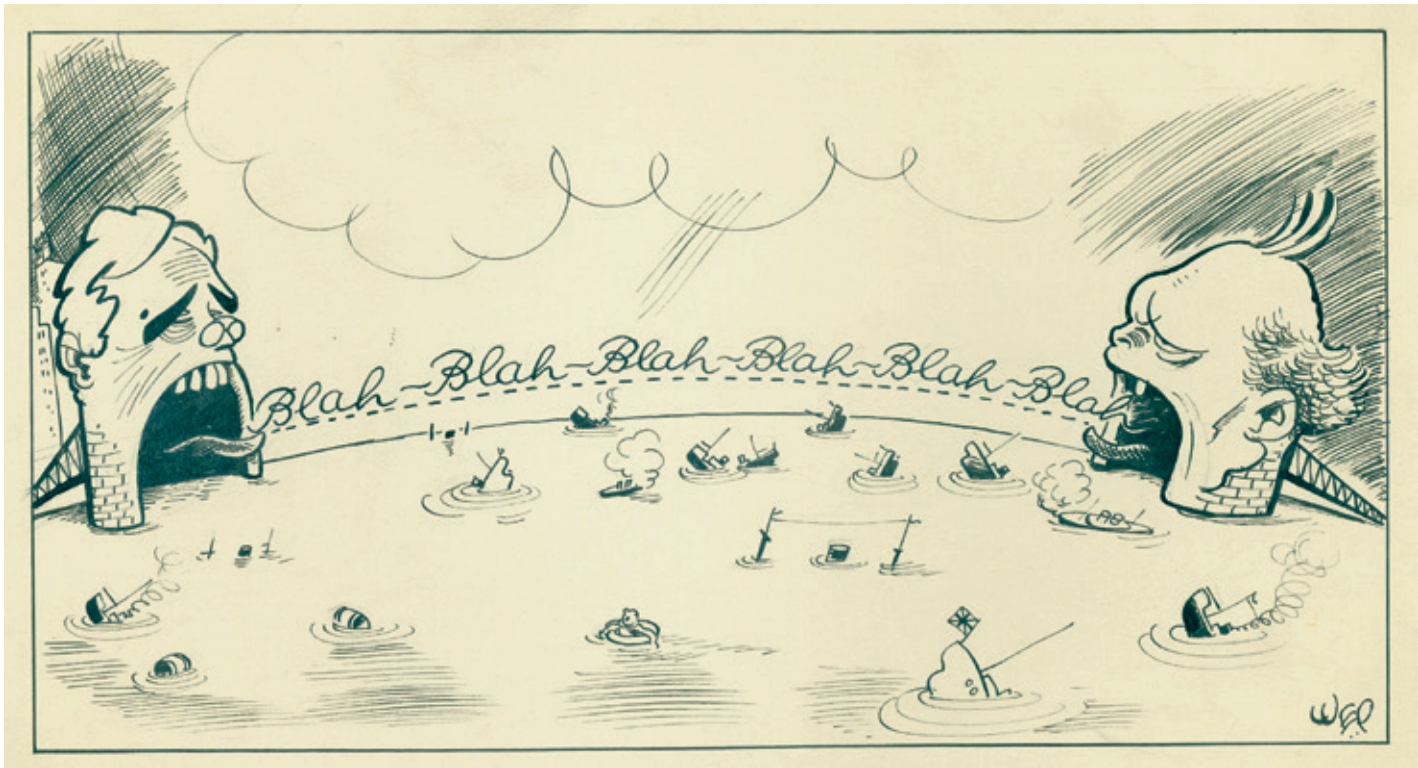 Blah-Blah-Blah-Blah-Blah-Blah
WEP